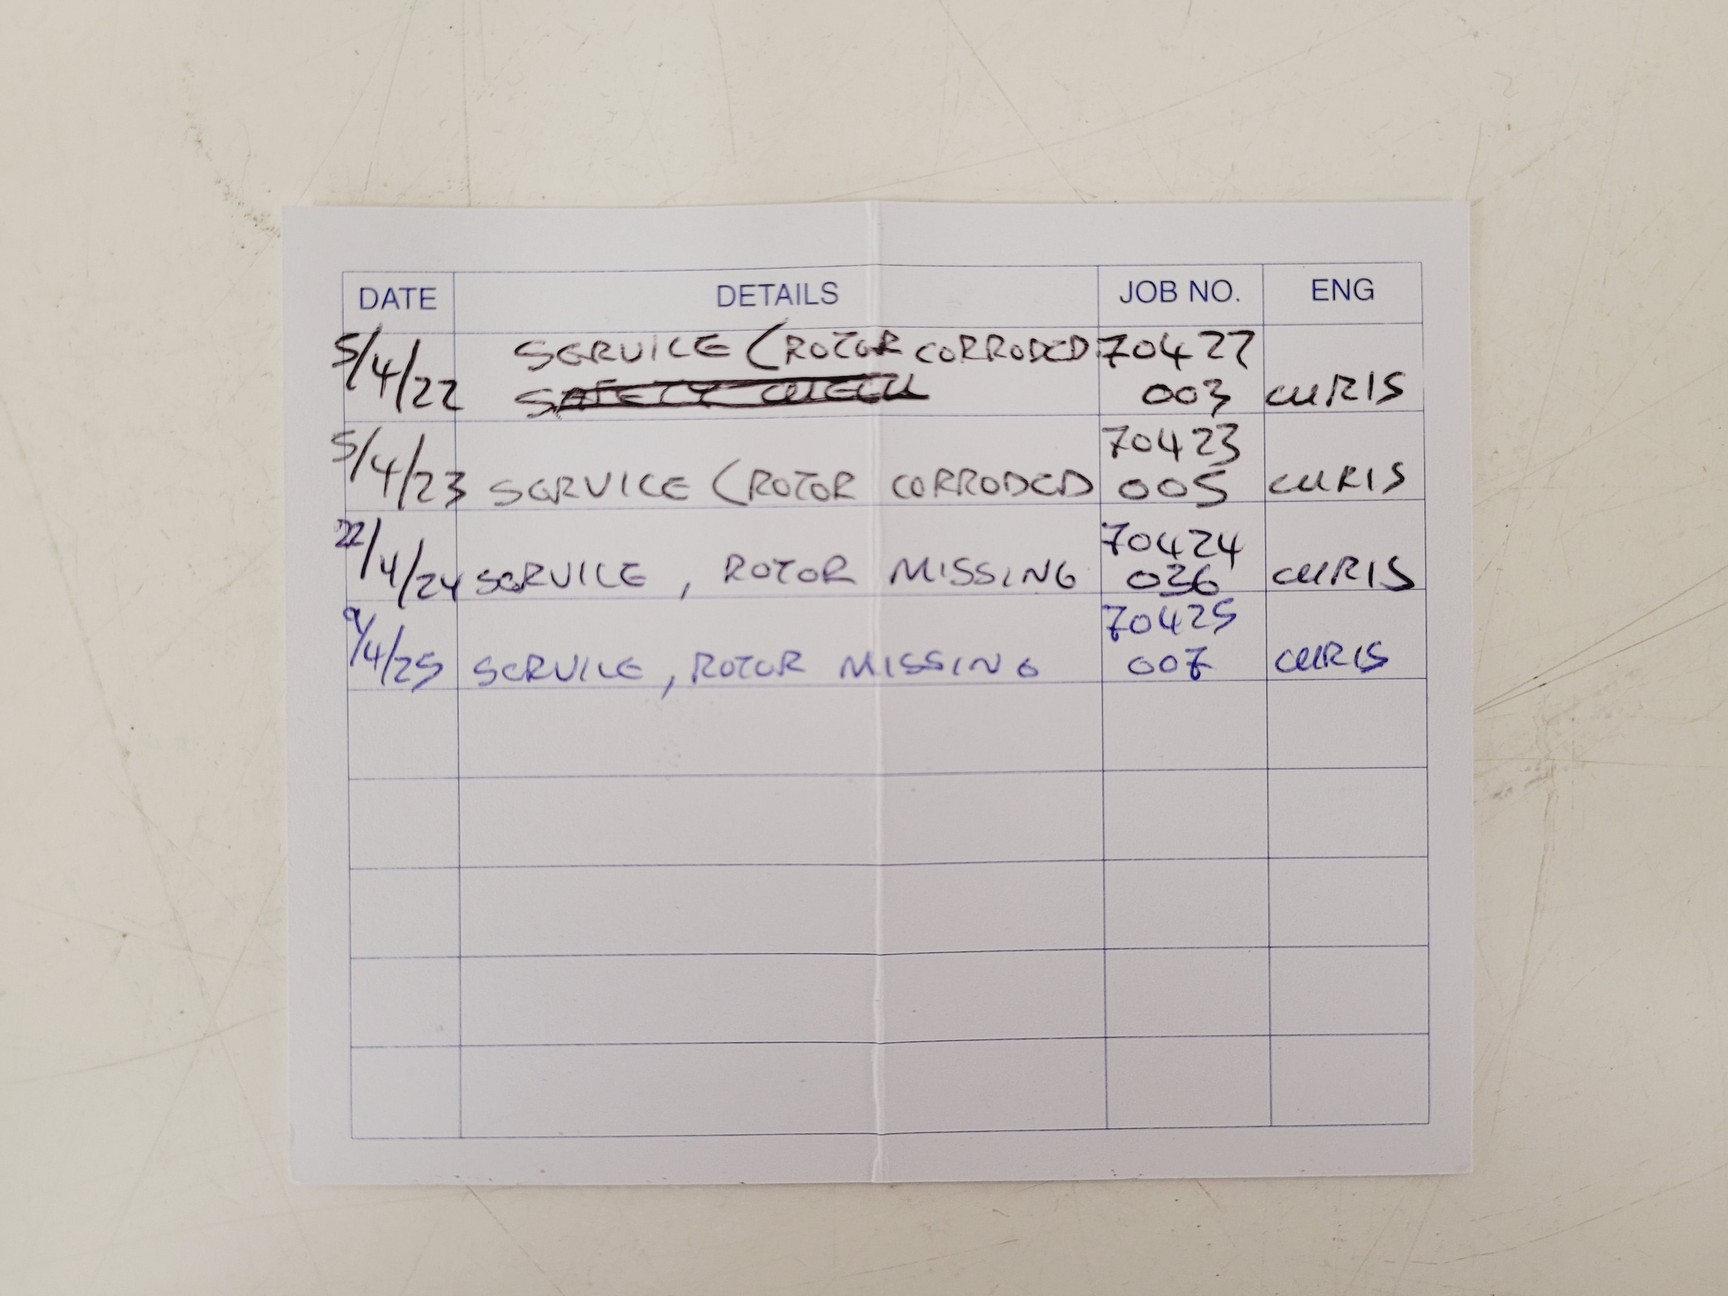 DATE DETAILS JOB NO. ENG
5/4/22 SERVICE (ROTOR CORRODED 70422
SAFETY CHECK 003 CHRIS
70423
5/4/23 SERVICE (ROTOR CORRODED 005 CHRIS
70424
22/4/24 SERVICE, ROTOR MISSING 036 CHRIS
70425
9/4/25 SERVICE, ROTOR MISSING 007 CHRIS